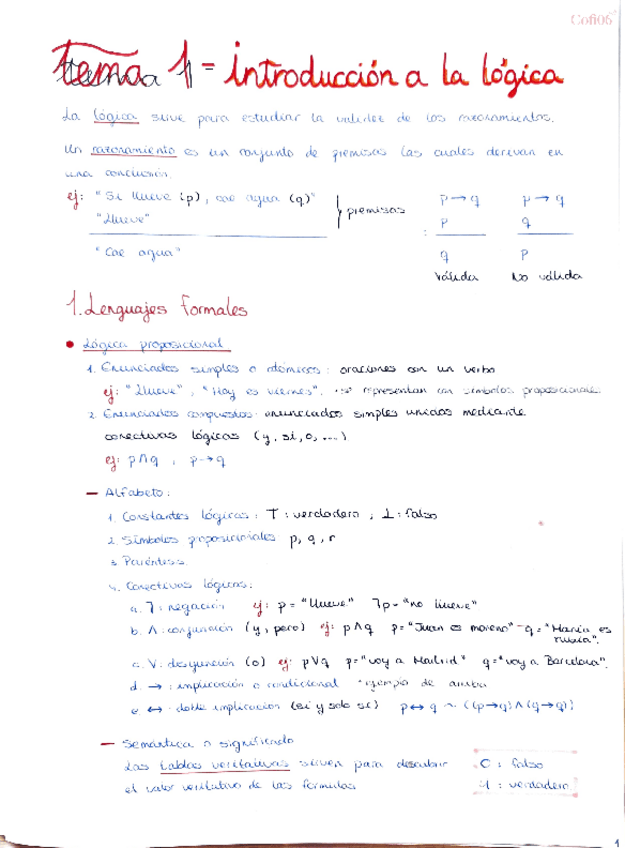 Cofi06
Tema 1 = Introducción a la lógica
La lógica sirve para estudiar la validez de los razonamientos.
Un razonamiento es un conjunto de premisas las cuales derivan en
una conclusión.
ej: "Si llueve (p), cae agua (q)"
"Llueve"
premisas
"Cae agua"
p → q
p
q
válida
p → q
q
p
No válida
1. Lenguajes formales
• Lógica proposicional
1. Enunciados simples o atómicos: oraciones con un verbo
ej: "Llueve", "Hoy es viernes". se representan con símbolos proposicionales.
2. Enunciados compuestos: enunciados simples unidos mediante
conectivas lógicas (y, si, o, ...)
ej: p∧q , p→q
— Alfabeto:
1. Constantes lógicas: T: verdadero ; ⊥: falso
2. Símbolos proposicionales p, q, r
3. Paréntesis
4. Conectivas lógicas:
a. ⅂: negación ej: p = "Llueve" ⅂p = "no llueve"
b. ∧: conjunción (y, pero) ej: p∧q p="Juan es moreno" q="María es
rubia".
c. ∨: disyunción (o) ej: p∨q p="voy a Madrid" q="voy a Barcelona".
d. →: implicación o condicional ejemplo de arriba
e. ↔: doble implicación (si y solo si) p↔q ~ ((p→q)∧(q→p))
— Semántica o significado
Las tablas veritativas sirven para descubrir
el valor veritativo de las formulas
0 : falso
1 : verdadero
1